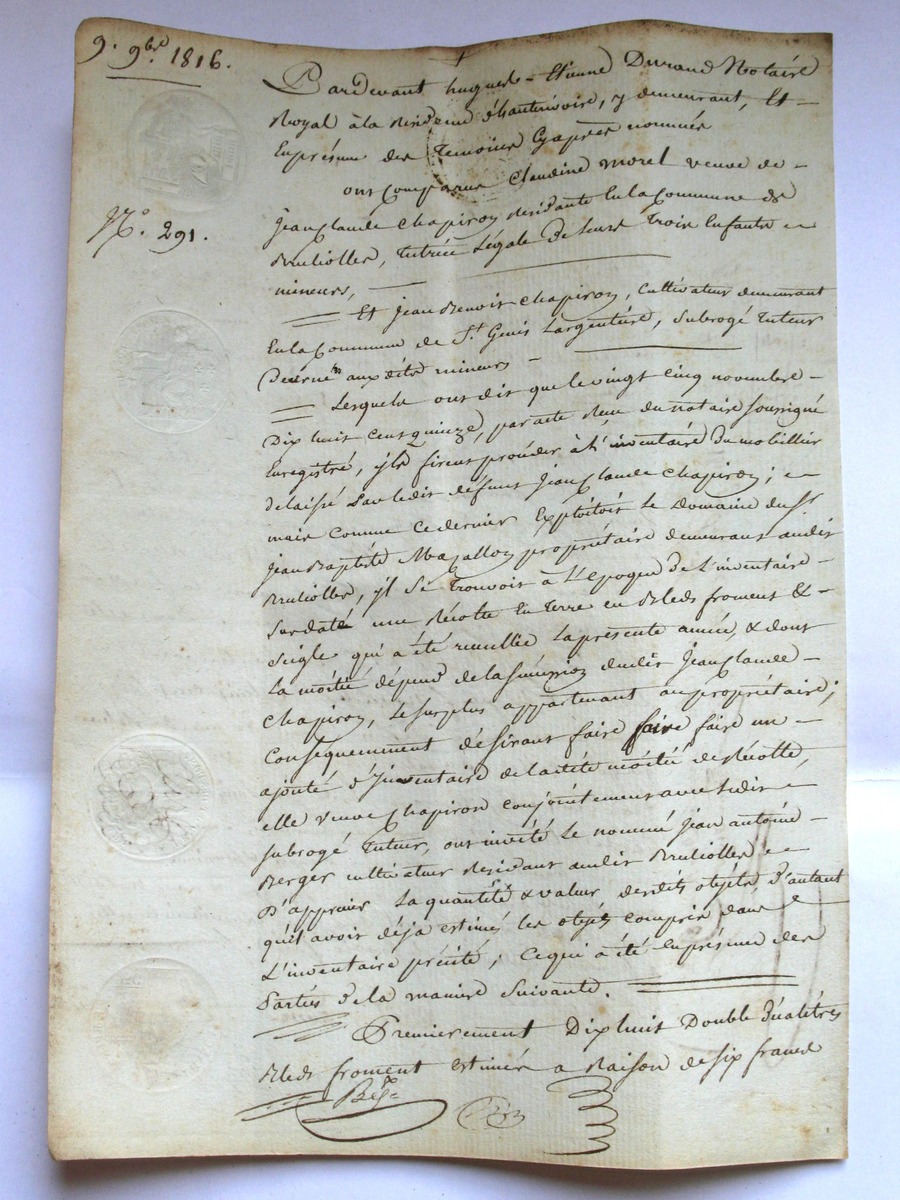 9. 9bre 1816.
N.° 291.
Pardevant hugues-Etienne Durand Notaire
Royal à la Residence d'hauterivoire, y demeurant, Et
Enprésence des Temoins Cyaprès nommés
ont Comparus Claudine Morel veuve de
Jean Claude Chapiron Residante En la Commune de
Brulioller, tutrice Légale de leurs Trois Enfants
mineurs,
Et Jean Benoit Chapiron, Cultivateur demeurant
En la Commune de St. Genis Largentière, Subrogé tuteur
Décerné aux dits mineurs
Lesquels ont dit que le vingt cinq novembre
Dix huit Cent quinze, par acte Reçu du notaire soussigné
Enregistré, ils firent procéder à L'inventaire du mobillier
delaissé Par ledit défunt Jean Claude Chapiron; et
mais Comme Ce dernier Exploitoit Le Domaine du Sr.
Jean Baptiste Mazallon propriétaire demeurant audit
Brulioller, il Se Trouvoit à L'Epoque de L'inventaire
Sus daté une Récolte En Terre en Bleds froment &
Seigle qui a été recuillie La présente année, & dont
La moitié dépend de la Succession dudit Jean Claude
Chapiron, Le Surplus appartenant au propriétaire;
Conséquemment désirant faire faire faire un
ajouté d'Inventaire de la dite moitié de Récolte,
elle veuve Chapiron Conjointement avec Ledit
Subrogé Tuteur, ont invité Le nommé Jean antoine
Berger cultivateur Residant audit Brulioller
D'apprecier La quantité & valeur desdits objets, D'autant
qu'il avoit déja estimés les objets Compris dans
L'inventaire précité; Ce qui a été En présence des
Parties de la maniere Suivante.
Premierement Dix huit Double Décalitres
Bleds froment estimés a Raison de Six francs